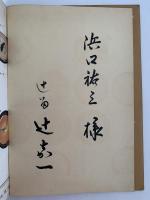 浜口祐三様
辻留
辻嘉一